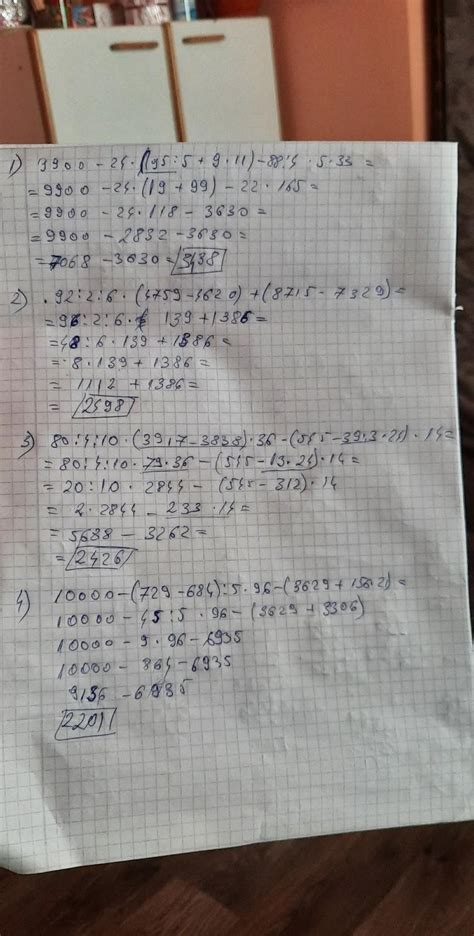 1) 9900 - 24 · (95:5 + 9 · 11) - 88:4 · 5 · 33 =
= 9900 - 24 · (19 + 99) - 22 · 165 =
= 9900 - 24 · 118 - 3630 =
= 9900 - 2832 - 3630 =
= 7068 - 3630 = 3438
2) 92:2:6 · (4759 - 4620) + (8715 - 7329) =
= 96:2:6 · 139 + 1386 =
= 48:6 · 139 + 1386 =
= 8 · 139 + 1386 =
= 1112 + 1386 =
= 2498
3) 80:4:10 · (3917 - 3838) · 36 - (545 - 39:3 · 24) · 14 =
= 80:4:10 · 79 · 36 - (545 - 13 · 24) · 14 =
= 20:10 · 2844 - (545 - 312) · 14
= 2 · 2844 - 233 · 14 =
= 5688 - 3262 =
= 2426
4) 10000 - (729 - 684):5 · 96 - (3629 + · 2) =
10000 - 45:5 · 96 - (3629 + 3306)
10000 - 9 · 96 - 6935
10000 - 864 - 6935
9136 - 6935
2201